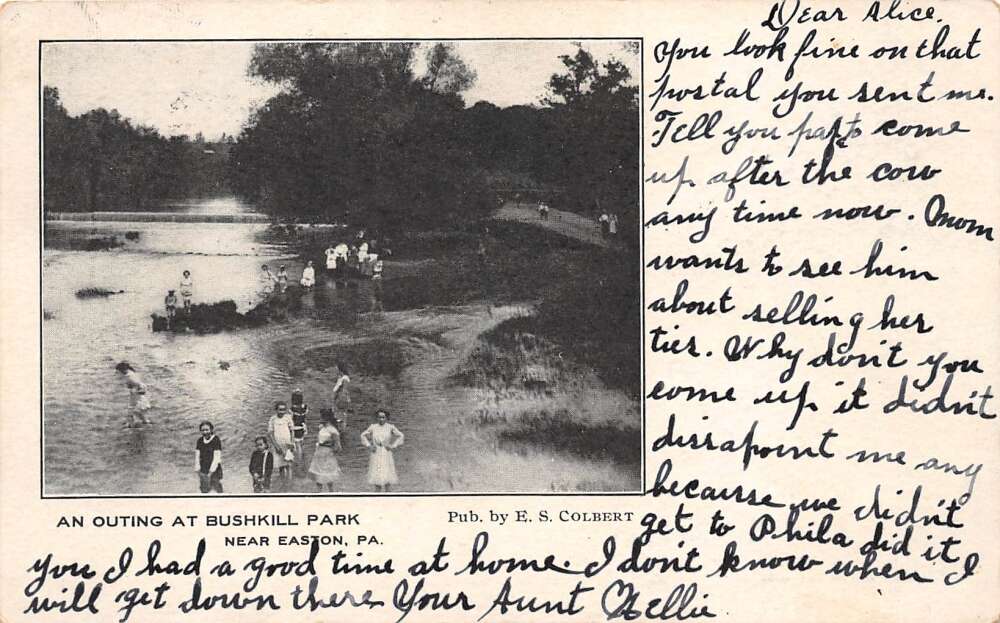 Dear Alice.
You look fine on that
postal you sent me.
Tell you papa to come
up after the cow
any time now. Mom
wants to see him
about selling her
tier. Why don't you
come up it didn't
dissapoint me any
because we didn't
get to Phila did it
you I had a good time at home. I don't know when I
will get down there Your Aunt Nellie
AN OUTING AT BUSHKILL PARK
NEAR EASTON, PA.
Pub. by E. S. COLBERT